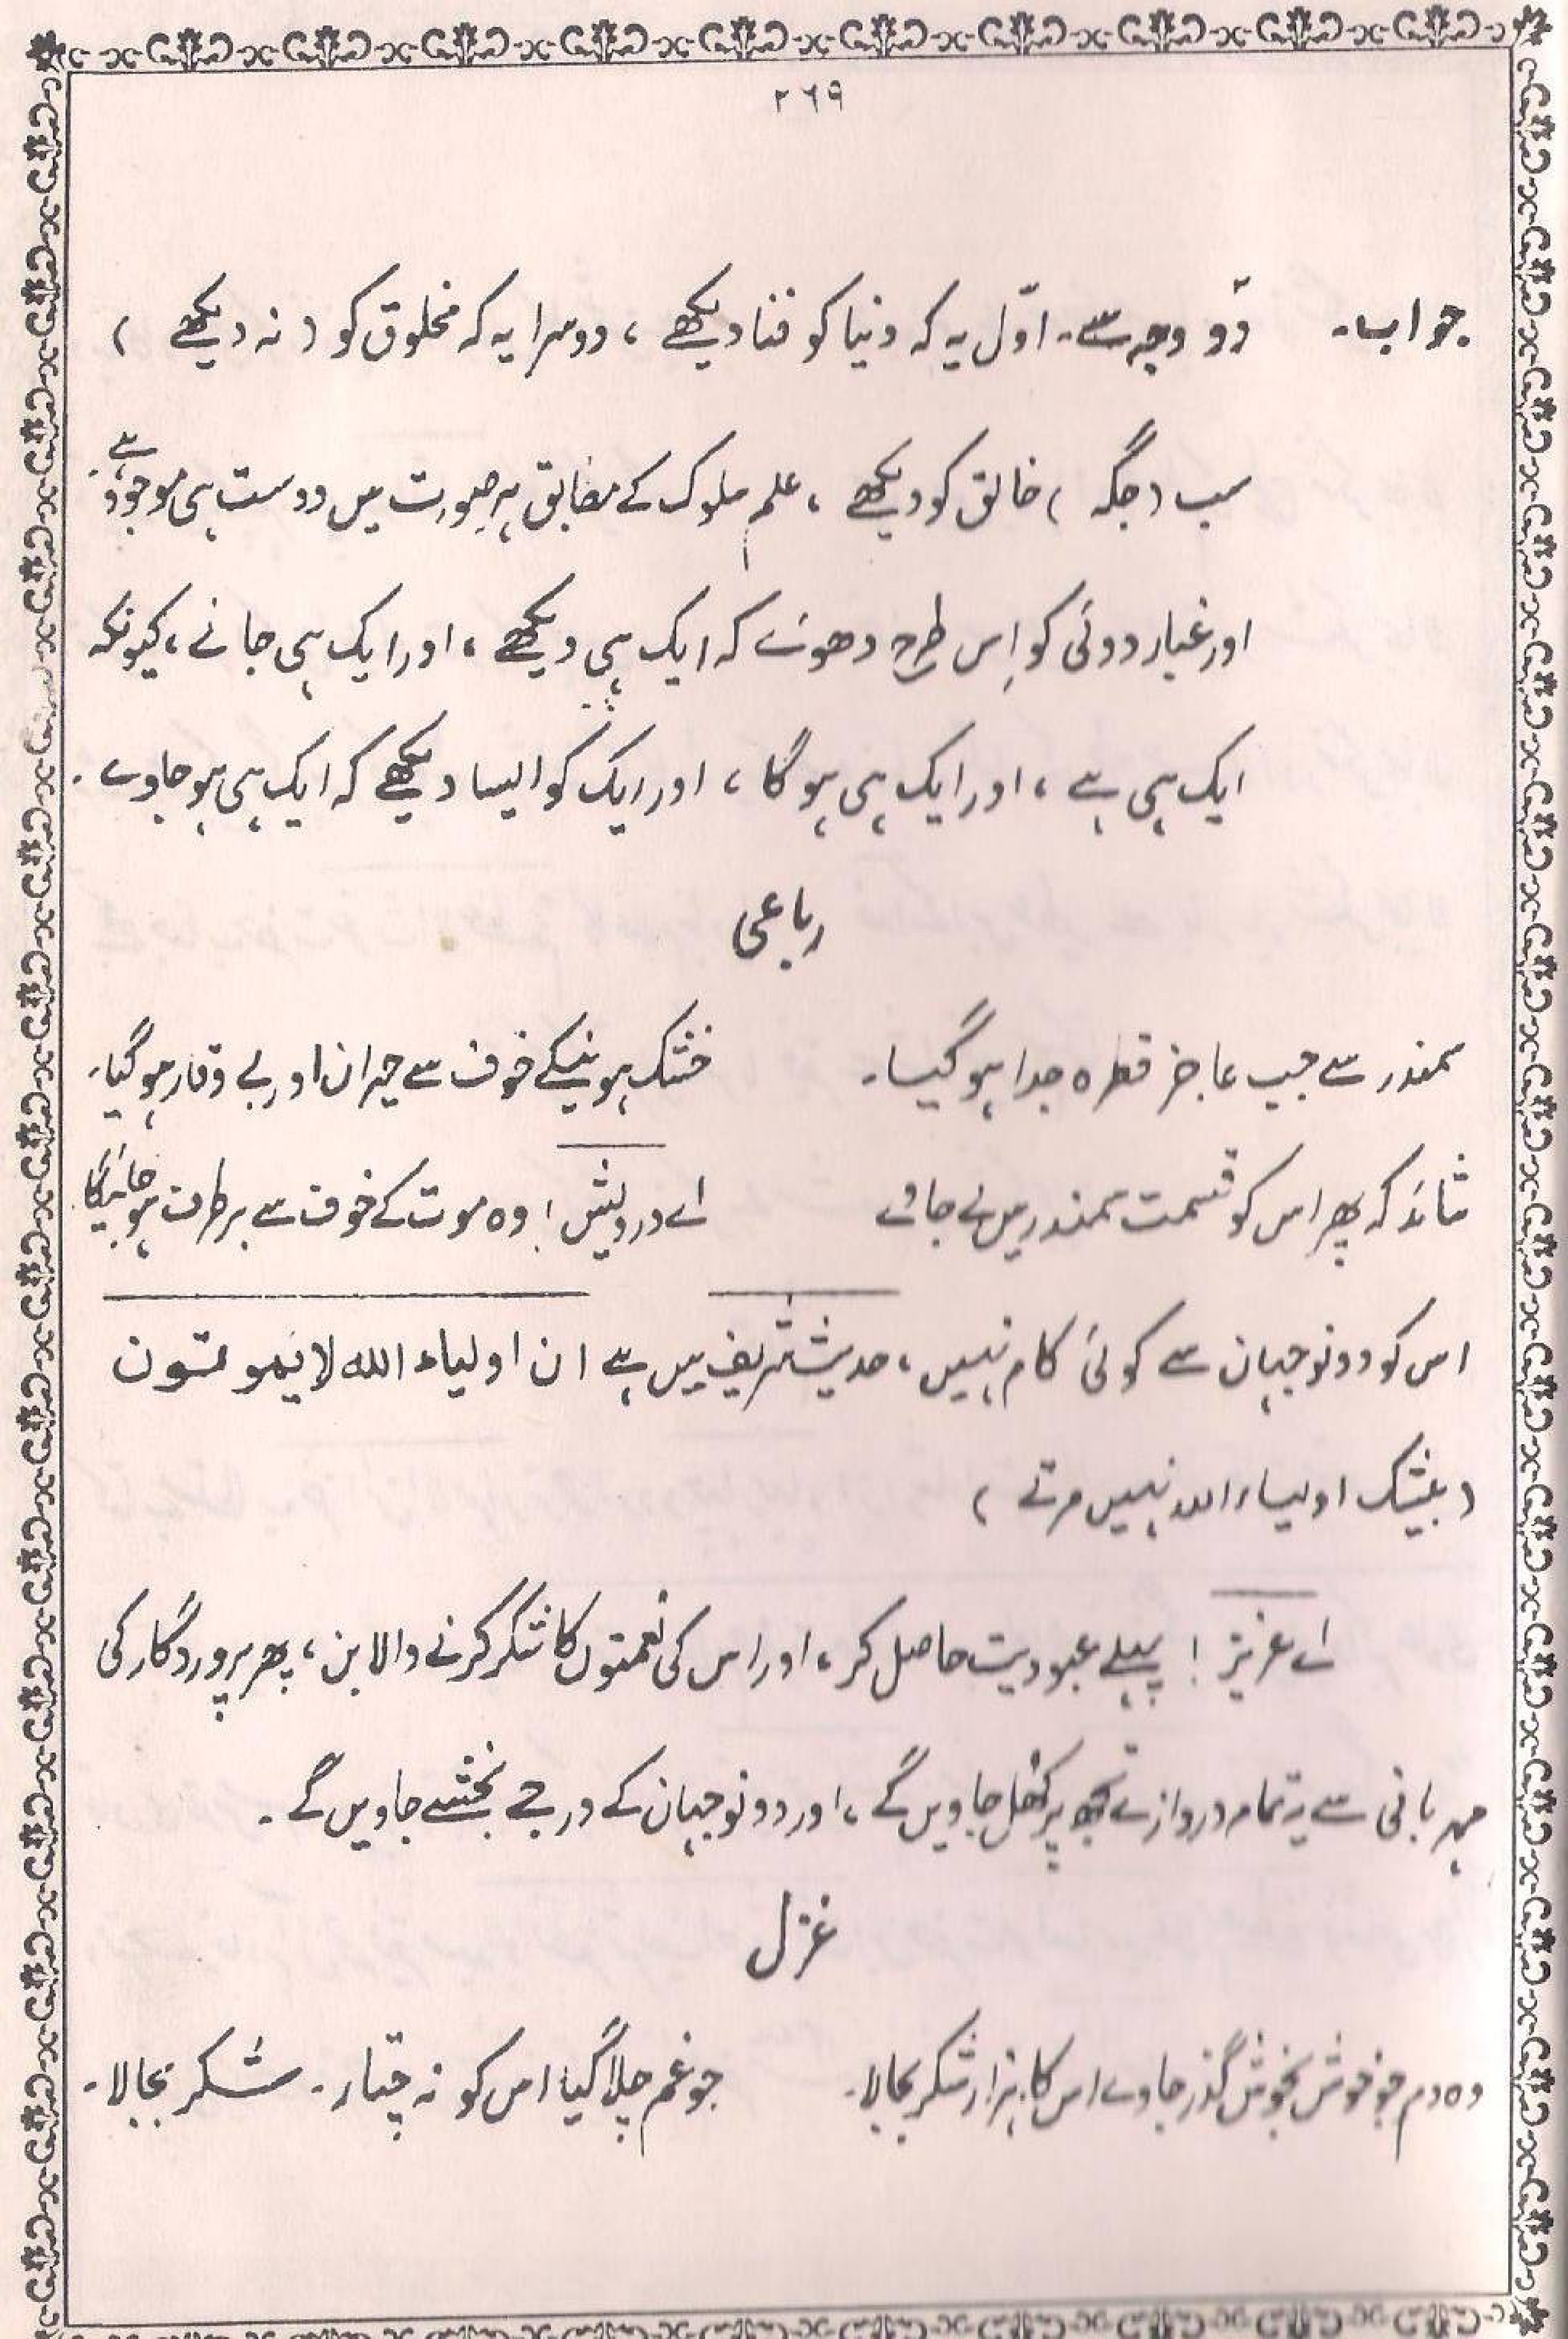 ۲۶۹
جواب۔ دّو وجہ سے۔ اوّل یہ کہ دنیا کو فنا دیکھے ، دوسرا یہ کہ مخلوق کو ( نہ دیکھے )
سب ( جگہ ) خالق کو دیکھے ، علم سلوک کے مطابق ہر صورت میں دوست ہی موجود ہے۔
اور غبار دوئی کو اِس طرح دھوئے کہ ایک ہی دیکھے ، اور ایک ہی جانے ، کیونکہ
ایک ہی ہے ، اور ایک ہی ہو گا ، اور ایک کو ایسا دیکھے کہ ایک ہی ہو جاوے ۔
رباعی
سمندر سے جب عاجز قطرہ جدا ہو گیا۔ خشک ہونیکے خوف سے حیران اور بے وقار ہو گیا۔
شائد کہ پھر اس کو قسمت سمندر میں لے جائے اے درویش ! وہ موت کے خوف سے برطرف ہو جائیگا
اس کو دونو جہان سے کوئی کام نہیں ، حدیث شریف میں ہے ان اولیاء اللہ لا یموتون
( بیشک اولیاء اللہ نہیں مرتے )
اے عزیز ! پہلے عبودیت حاصل کر ، اور اس کی نعمتوں کا شکر کرنے والا بن ، پھر پروردگار کی
مہربانی سے یہ تمام دروازے تجھ پر کھل جاویں گے ، اور دونو جہان کے درجے بخشے جاویں گے ۔
غزل
وہ دم جو خوش بخوش گذر جاوے اس کا ہزار شکر بجالا۔ جو غم چلا گیا اس کو نہ چتار ۔ شکر بجالا ۔